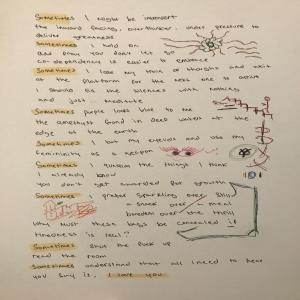 Sometimes I might be introvert
the inward facing, overthinker, under pressure to
deliver greatness
Sometimes I hold on
and pray you don't let go
co-dependency is easier to embrace
Sometimes I lose my train of thought and wait
at the platform for the next one to arrive
I should fill the silences with nothing
and just... meditate
Sometimes purple looks blue to me
the amethyst found in deep waters at the
edge of the earth
Sometimes I bat my eyelids and use my
femininity as a weapon
Sometimes I question the things I think
I already know
You don't get awarded for growth
Sometimes I prefer sparkling over still
a snack over a meal
boredom over the thrill
Why must these bags be concealed if
tiredness is real?
Sometimes shut the fuck up
read the room
Sometimes understand that all I need to hear
you say is, I love you